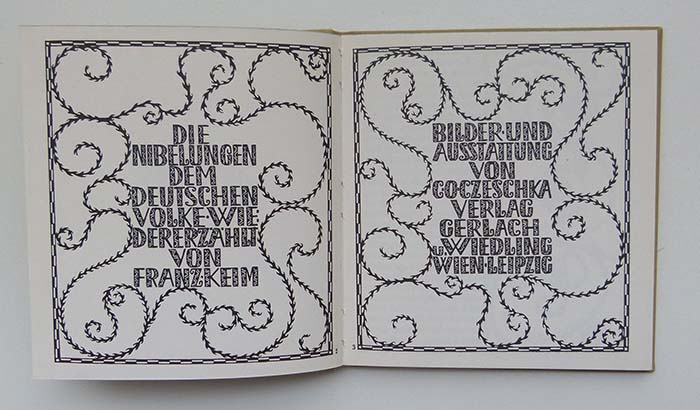 DIE
NIBELUNGEN
DEM
DEUTSCHEN
VOLKE·WIE
DERERZÄHLT
VON
FRANZ·KEIM
BILDER·UND
AUSSTATTUNG
VON
C·O·CZESCHKA
VERLAG
GERLACH
u.WIEDLING
WIEN·LEIPZIG
3